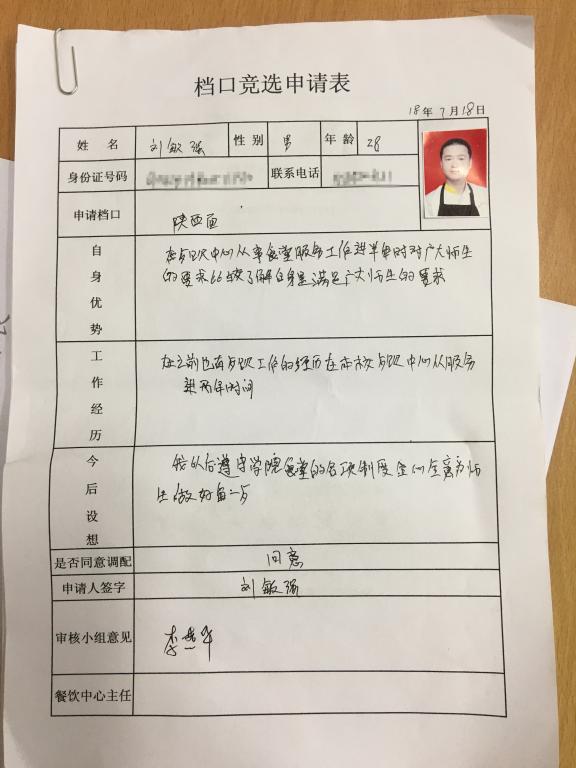 档口竞选申请表
18年7月18日
姓名 刘敏强 性别 男 年龄 28
身份证号码 联系电话
申请档口 陕西面
自身优势
在与职中心从事食堂服务工作进半年时对广大师生
的要求比较了解自身是满足广大师生的要求
工作经历
在之前也有与职工作的经历在本校与职中心从服务
类两年时间
今后设想
给以后遵守学院食堂的各项制度全心全意为师
生做好每一方
是否同意调配 同意
申请人签字 刘敏强
审核小组意见
餐饮中心主任